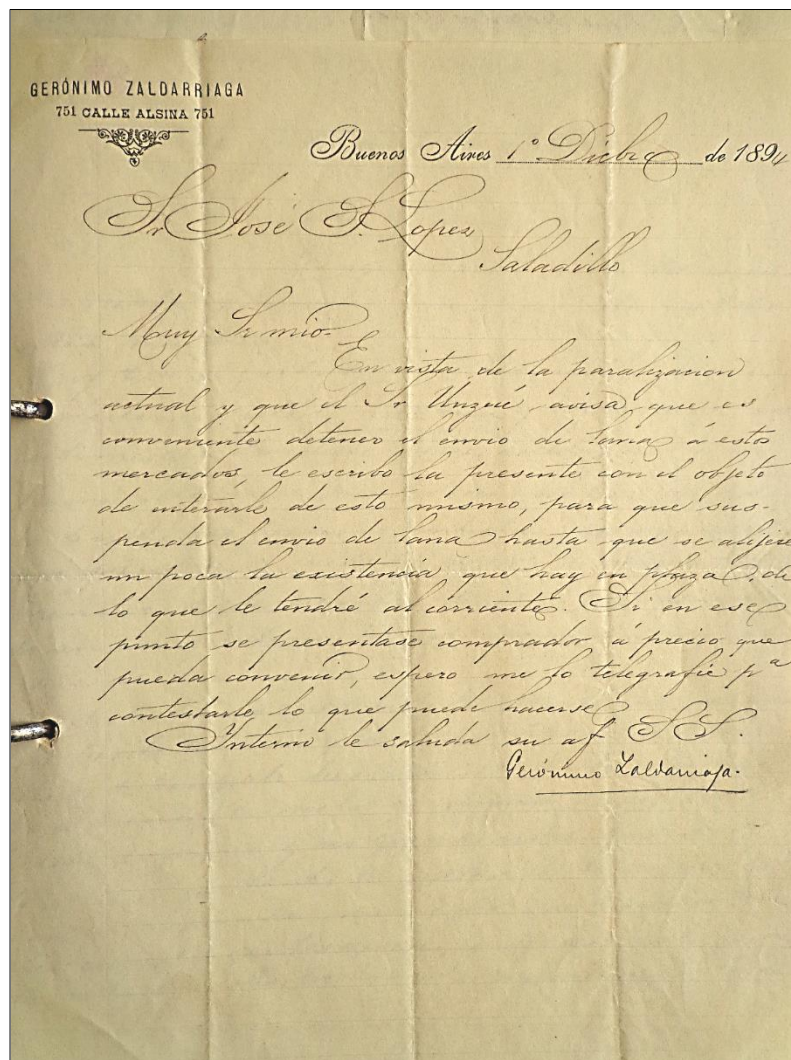 GERÓNIMO ZALDARRIAGA
751 CALLE ALSINA 751
Buenos Aires 1º Dicbre de 1894
Sr José S. Lopez
Saladillo
Muy Sr mio-
En vista de la paralizacion
actual y que el Sr Unzué avisa que es
conveniente detener el envio de lana á estos
mercados, le escribo la presente con el objeto
de enterarle de esto mismo, para que sus-
penda el envio de lana hasta que se alijere
un poca la existencia que hay en plaza, de
lo que le tendré al corriente. Si en ese
punto se presentase comprador á precio que
pueda convenir, espero me lo telegrafie pª
contestarle lo que puede hacerse
Interin le saluda su af S.S.
Gerónimo Zaldarriaga.